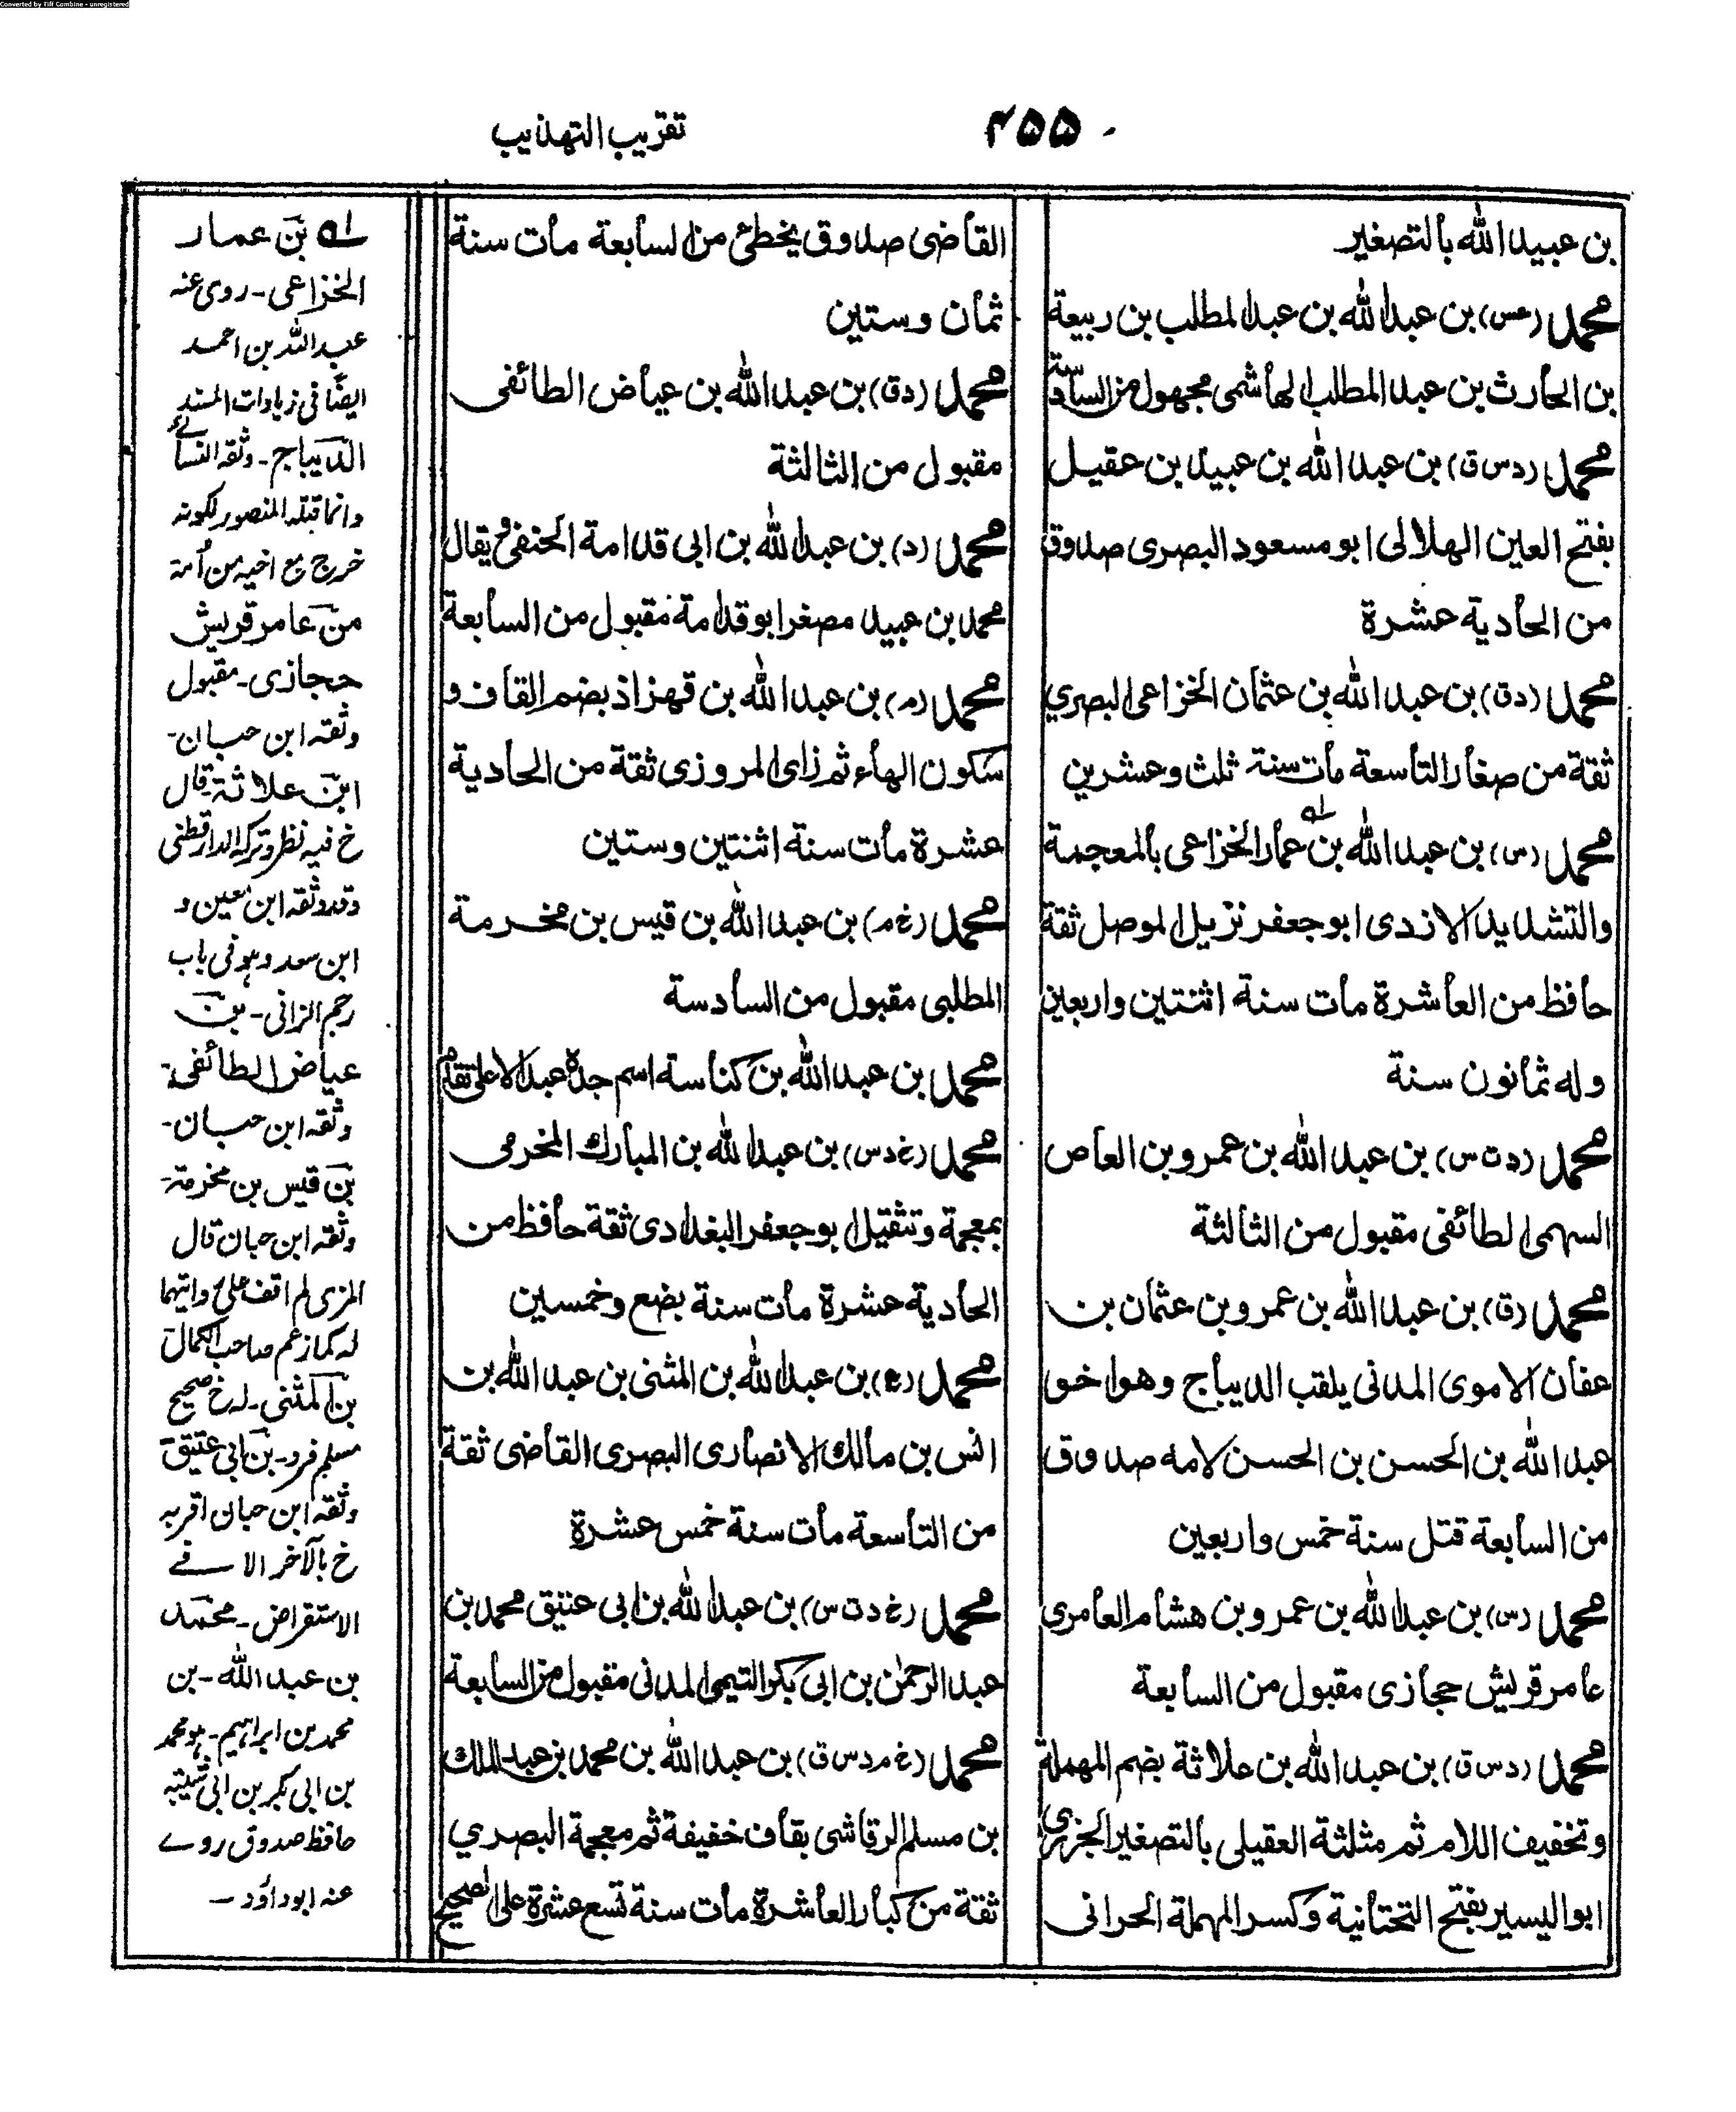 Converted by Tiff Combine - unregistered
۴۵۵
تقريب التهذيب
بن عبيد الله بالتصغير
محمد (عس) بن عبد الله بن عبد المطلب بن ربيعة
بن الحارث بن عبد المطلب الهاشمى مجهول من السادسة
محمد (د س ق) بن عبد الله بن عبيد بن عقيل
بفتح العين الهلالى ابو مسعود البصرى صدوق
من الحادية عشرة
محمد (د ق) بن عبد الله بن عثمان الخزاعى البصري
ثقة من صغار التاسعة مات سنة ثلث وعشرين
محمد (س) بن عبد الله بن عمار الخزاعى بالمعجمة
والتشديد الازدى ابو جعفر نزيل الموصل ثقة
حافظ من العاشرة مات سنة اثنتين واربعين
وله ثمانون سنة
محمد (د ت س) بن عبد الله بن عمرو بن العاص
السهمى الطائفى مقبول من الثالثة
محمد (ق) بن عبد الله بن عمرو بن عثمان بن
عفان الاموى المدنى يلقب الديباج وهو اخو
عبد الله بن الحسن بن الحسن لامه صدوق
من السابعة قتل سنة خمس واربعين
محمد (س) بن عبد الله بن عمرو بن هشام العامرى
عامر قريش حجازى مقبول من السابعة
محمد (د س ق) بن عبد الله بن علاثة بضم المهملة
وتخفيف اللام ثم مثلثة العقيلى بالتصغير الجزرى
ابو اليسير بفتح التحتانية وكسر المهملة الحرانى
القاضى صدوق يخطئ من السابعة مات سنة
ثمان وستين
محمد (د ق) بن عبد الله بن عياض الطائفى
مقبول من الثالثة
محمد (د) بن عبد الله بن ابى قدامة الحنفى ويقال
محمد بن عبيد مصغر ابو قدامة مقبول من السابعة
محمد (م) بن عبد الله بن قهزاذ بضم القاف و
سكون الهاء ثم زاى المروزى ثقة من الحادية
عشرة مات سنة اثنتين وستين
محمد (غ م) بن عبد الله بن قيس بن مخرمة
المطلبى مقبول من السادسة
محمد بن عبد الله بن كناسة اسم جده عبد الاعلى تقدم
محمد (غ د س) بن عبد الله بن المبارك المخرمى
بمعجمة وتثقيل ابو جعفر البغدادى ثقة حافظ من
الحادية عشرة مات سنة بضع وخمسين
محمد (ع) بن عبد الله بن المثنى بن عبد الله بن
انس بن مالك الانصارى البصرى القاضى ثقة
من التاسعة مات سنة خمس عشرة
محمد (غ د ت س) بن عبد الله بن ابى عتيق محمد بن
عبد الرحمٰن بن ابى بكر التيمى المدنى مقبول من السابعة
محمد (غ م د س ق) بن عبد الله بن محمد بن عبد الملك
بن مسلم الرقاشى بقاف خفيفة ثم معجمة البصري
ثقة من كبار العاشرة مات سنة تسع عشرة على الصحيح
له بن عمار
الخزاعى ـ روى عنه
عبد الله بن احمد
ايضًا فى زيادات المسند
الديباج ـ وثقه النسائى
وانما قتله المنصور لكونه
خرج مع اخيه من أمه
من عامر قريش
حجازى ـ مقبول
وثقه ابن حبان ـ
ابن علاثة قال
خ فيه نظر وتركه الدارقطنى
وقد وثقه ابن معين و
ابن سعد وهو فى باب
رجم الزانى ـ بن
عياض الطائفى ـ
وثقه ابن حبان ـ
بن قيس بن مخرمة ـ
وثقه ابن حبان قال
المزى لم اقف على روايتهما
له كما زعم صاحب الكمال
بن المثنى ـ له خ صحيح
مسلم فرد ـ بن ابى عتيق
وثقه ابن حبان اقرب
خ بالآخر الا فے
الاستقراض ـ محمد
بن عبد الله ـ بن
محمد بن ابراهيم ـ هو محمد
بن ابى بكر بن ابى شيبة
حافظ صدوق روے
عنه ابو داؤد ـ